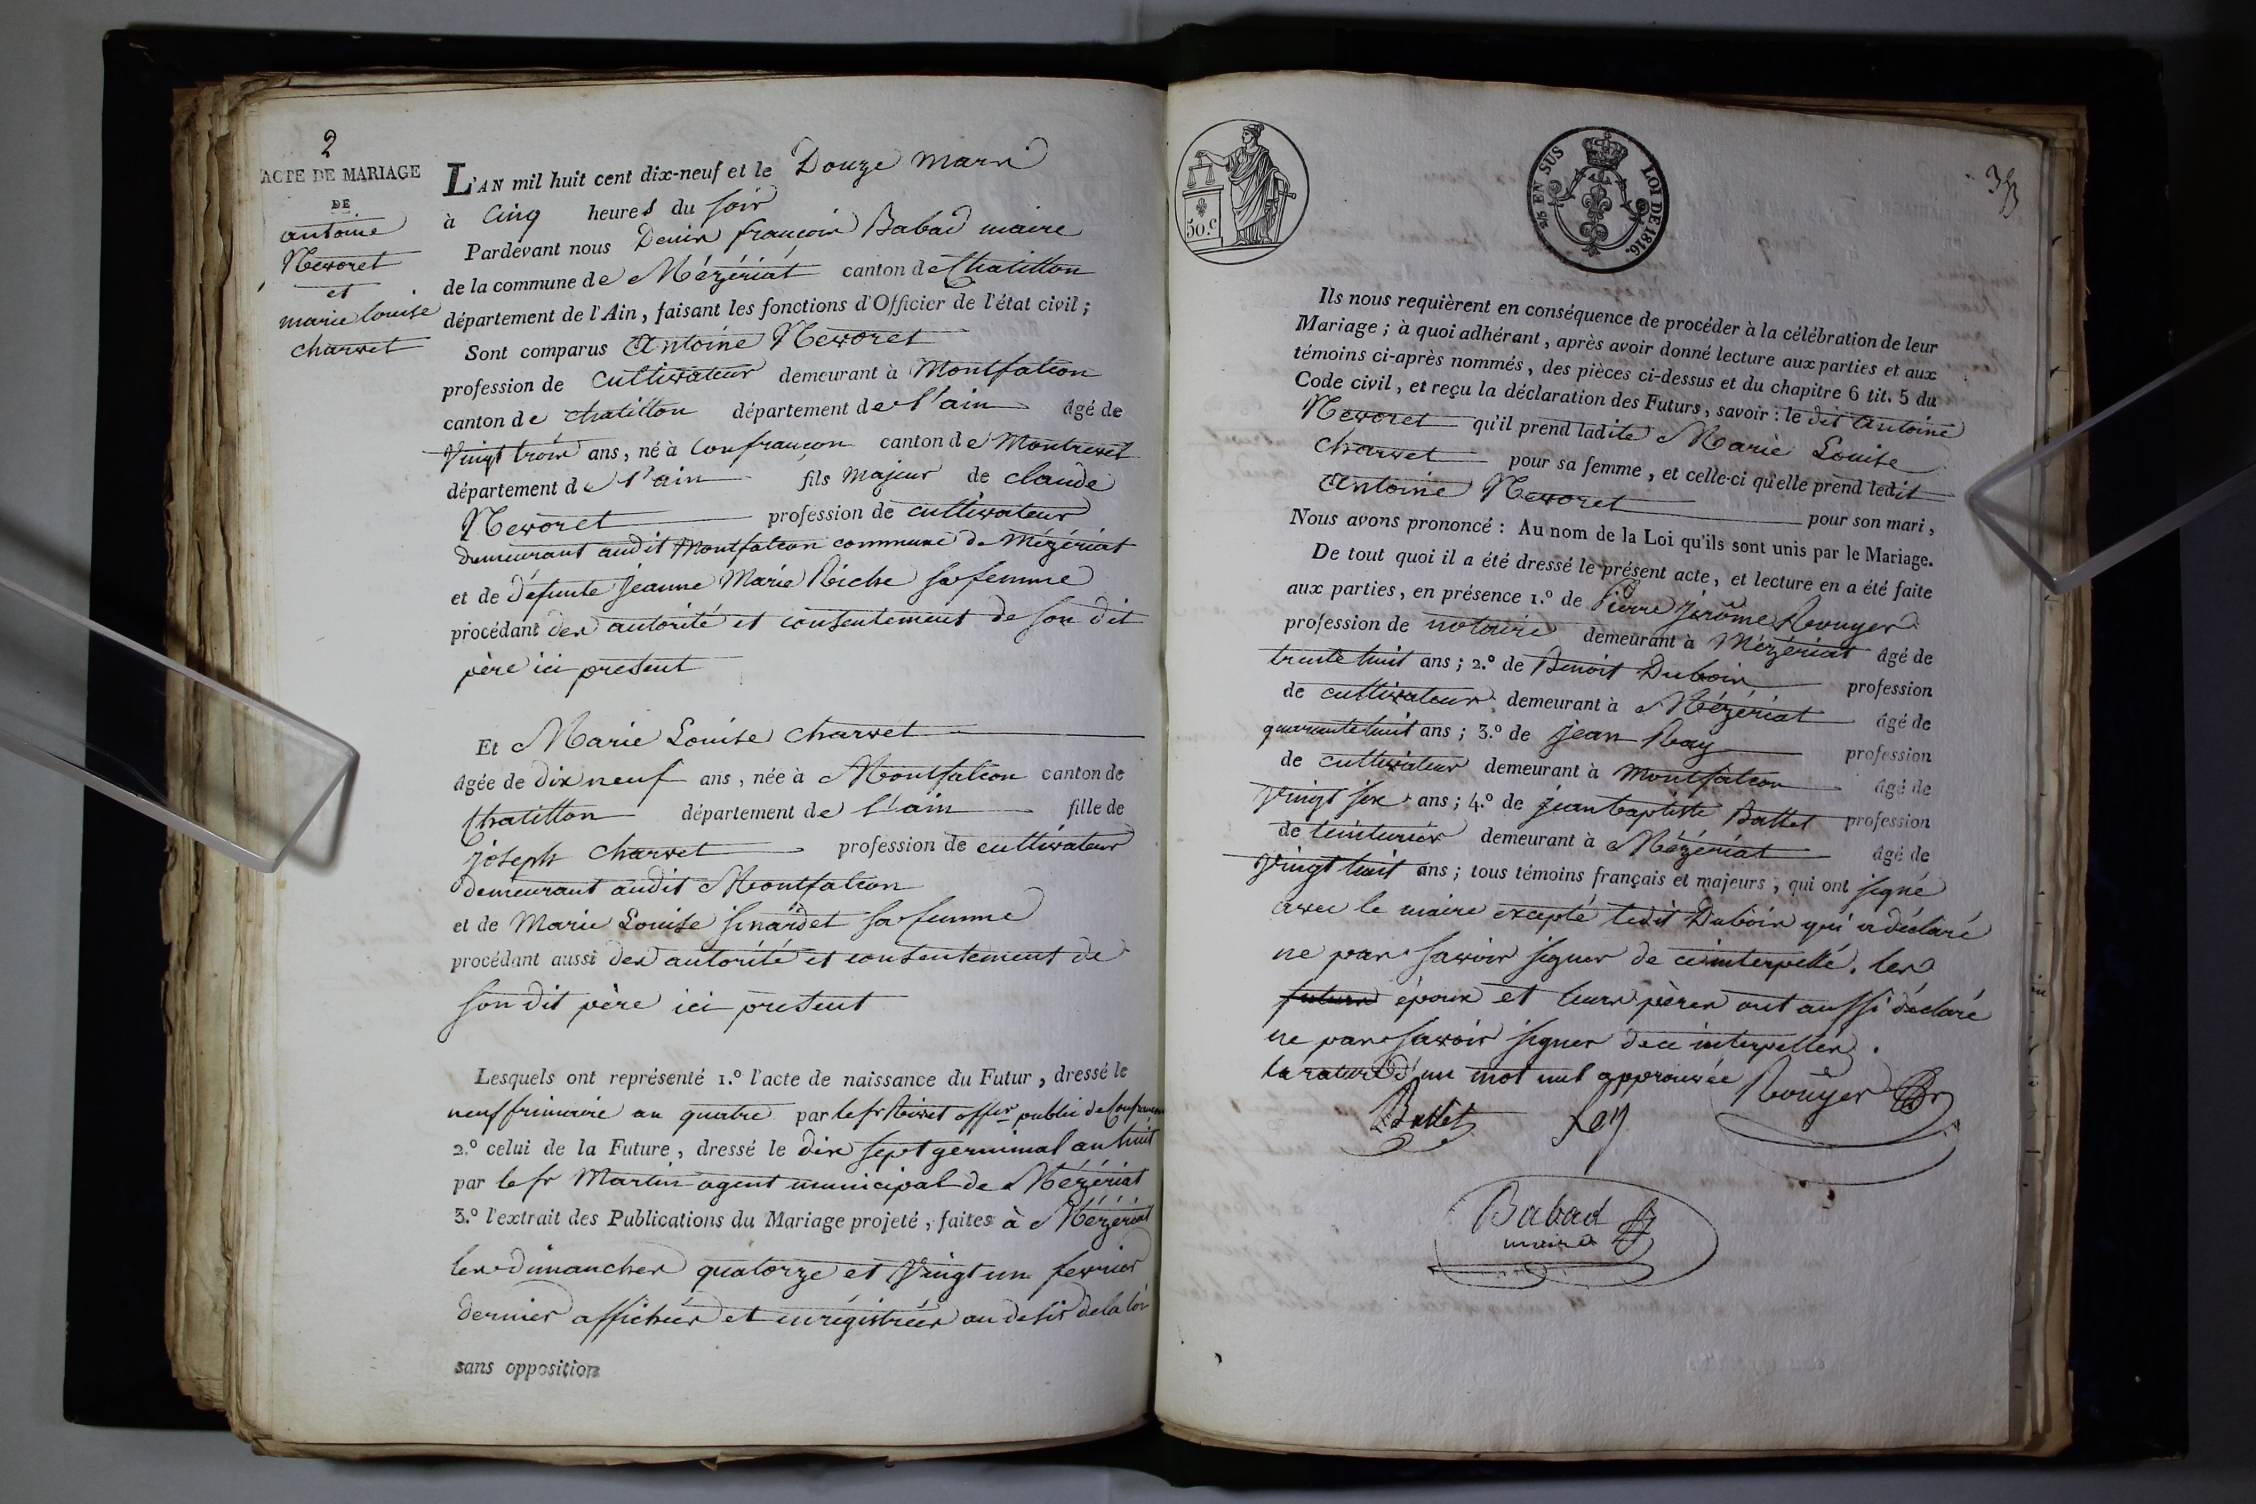 2
ACTE DE MARIAGE
DE
antoine
Nevoret
et
marie Louise
charvet
L'AN mil huit cent dix-neuf et le Douze mars
à Cinq heures du soir
Pardevant nous Denis françois Babad maire
de la commune de Mézériat canton de Chatillon
département de l'Ain, faisant les fonctions d'Officier de l'état civil ;
Sont comparus Antoine Nevoret
profession de Cultivateur demeurant à Montfalcon
canton de chatillon département de l'ain âgé de
Vingt trois ans, né à Confrançon canton de Montrevet
département de l'ain fils Majeur de claude
Nevoret profession de cultivateur
demeurant audit Montfalcon commune de Mézériat
et de défunte Jeanne Marie Riche sa femme
procédant des autorité et consentement de son dit
père ici present
Et Marie Louise Charvet
âgée de dix neuf ans, née à Montfalcon canton de
Chatillon département de l'ain fille de
joseph Charvet profession de cultivateur
demeurant audit Montfalcon
et de Marie Louise sinardet sa femme
procédant aussi des autorité et consentement de
son dit père ici present
Lesquels ont représenté 1.º l'acte de naissance du Futur, dressé le
neuf frimaire an quatre par le sr Rivet offer public de Confrançon
2.º celui de la Future, dressé le dix sept germinal an huit
par le sr Martin agent municipal de Mézériat
3.º l'extrait des Publications du Mariage projeté, faites à Mézériat
les dimanches quatorze et Vingt un fevrier
dernier affichées et enrégistrées au desir de la loi
sans opposition
50.C
25 EN SUS
LOI DE 1816.
Ils nous requièrent en conséquence de procéder à la célébration de leur
Mariage ; à quoi adhérant, après avoir donné lecture aux parties et aux
témoins ci-après nommés, des pièces ci-dessus et du chapitre 6 tit. 5 du
Code civil, et reçu la déclaration des Futurs, savoir : le dit Antoine
Nevoret qu'il prend ladite Marie Louise
Charvet pour sa femme, et celle-ci qu'elle prend ledit
Antoine Nevoret pour son mari,
Nous avons prononcé : Au nom de la Loi qu'ils sont unis par le Mariage.
De tout quoi il a été dressé le présent acte, et lecture en a été faite
aux parties, en présence 1.º de Pierre Jérôme Rouyer
profession de notaire demeurant à Mézériat âgé de
trente huit ans ; 2.º de Benoit Dubois profession
de cultivateur demeurant à Mézériat âgé de
quarante huit ans ; 3.º de Jean Ray profession
de cultivateur demeurant à Montfalcon âgé de
Vingt six ans ; 4.º de jean baptiste Battet profession
de teinturier demeurant à Mézériat âgé de
Vingt huit ans ; tous témoins français et majeurs, qui ont signé
avec le maire excepté ledit Dubois qui a déclaré
ne pas savoir signer de ce interpellé. les
futurs époux et leurs pères ont aussi déclaré
ne pas savoir signer de ce interpellés.
la rature d'un mot nul approuvée Rouyer
Battet Rey
Babad
maire